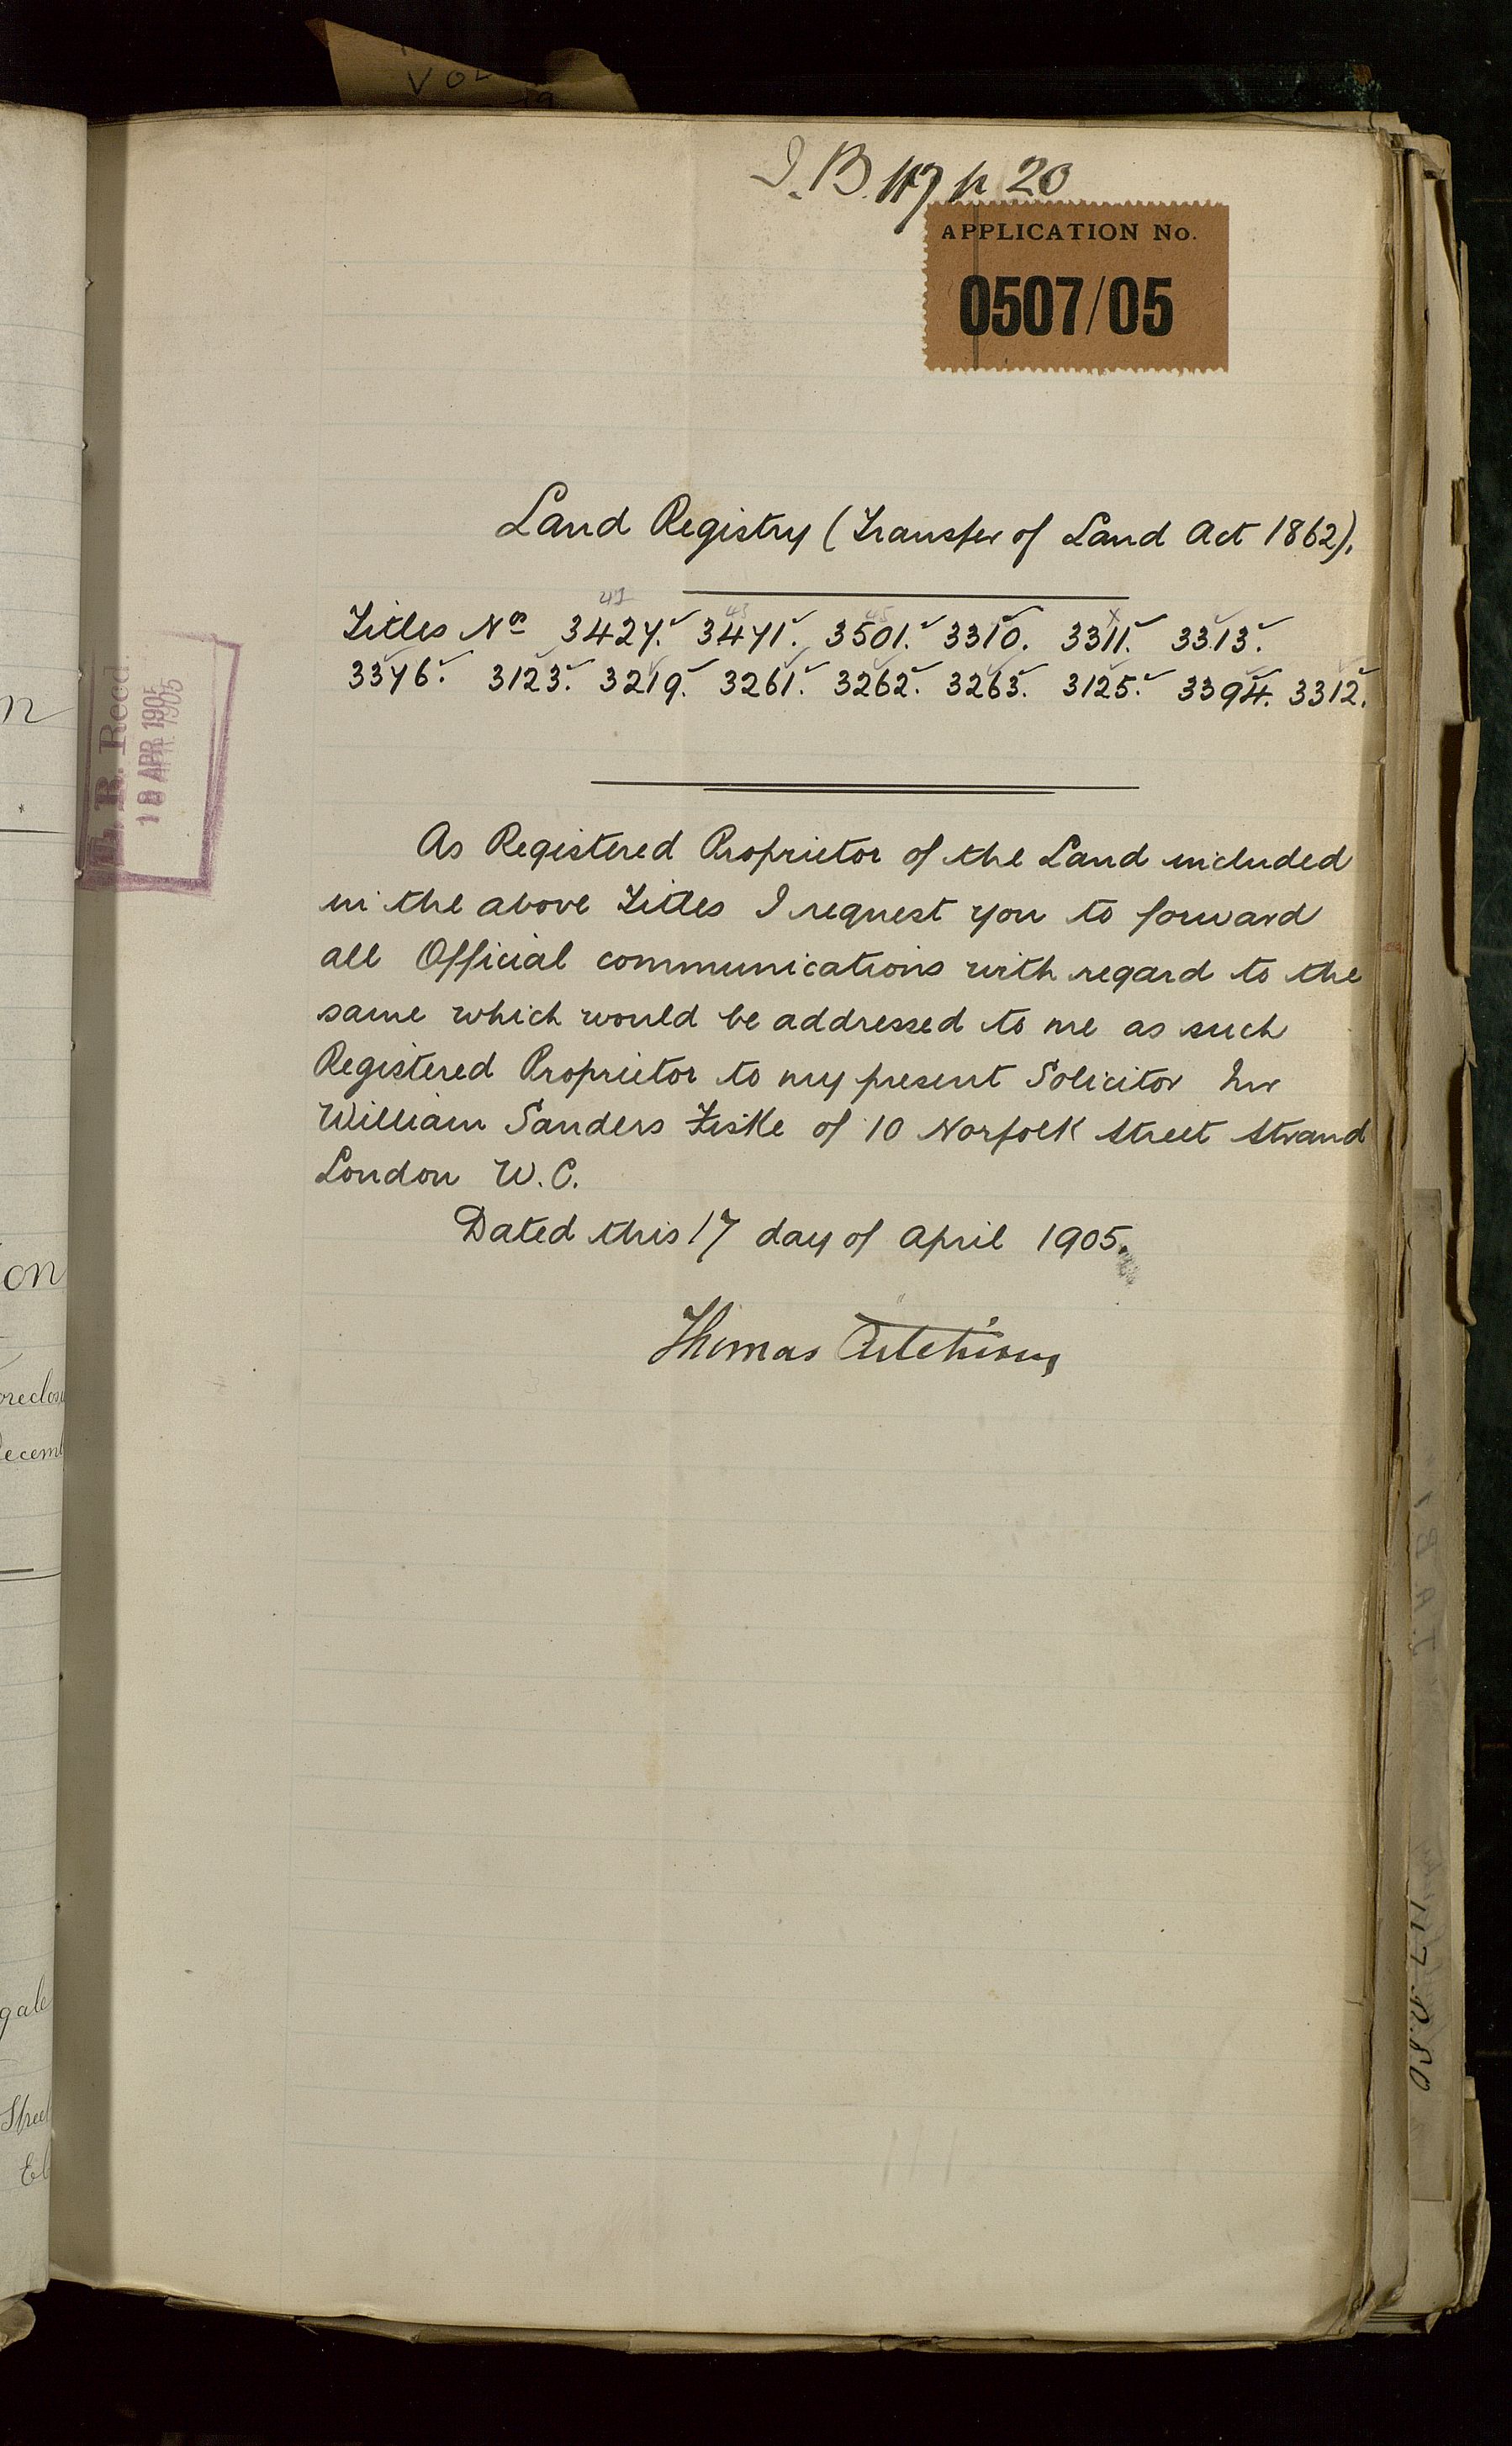 I.B. 117 p 20
APPLICATION No.
0507/05
Land Registry (Transfer of Land Act 1862).
Titles Nos 3427. 3471. 3501. 3310. 3311. 3313.
3376. 3123. 3219. 3261. 3262. 3263. 3125. 3394. 3312.
18 APR 1905
As Registered Proprietor of the Land included
in the above Titles I request you to forward
all Official communications with regard to the
same which would be addressed to me as such
Registered Proprietor to my present Solicitor Mr
William Sanders Fiske of 10 Norfolk Street Strand
London W.C.
Dated this 17 day of April 1905.
Thomas